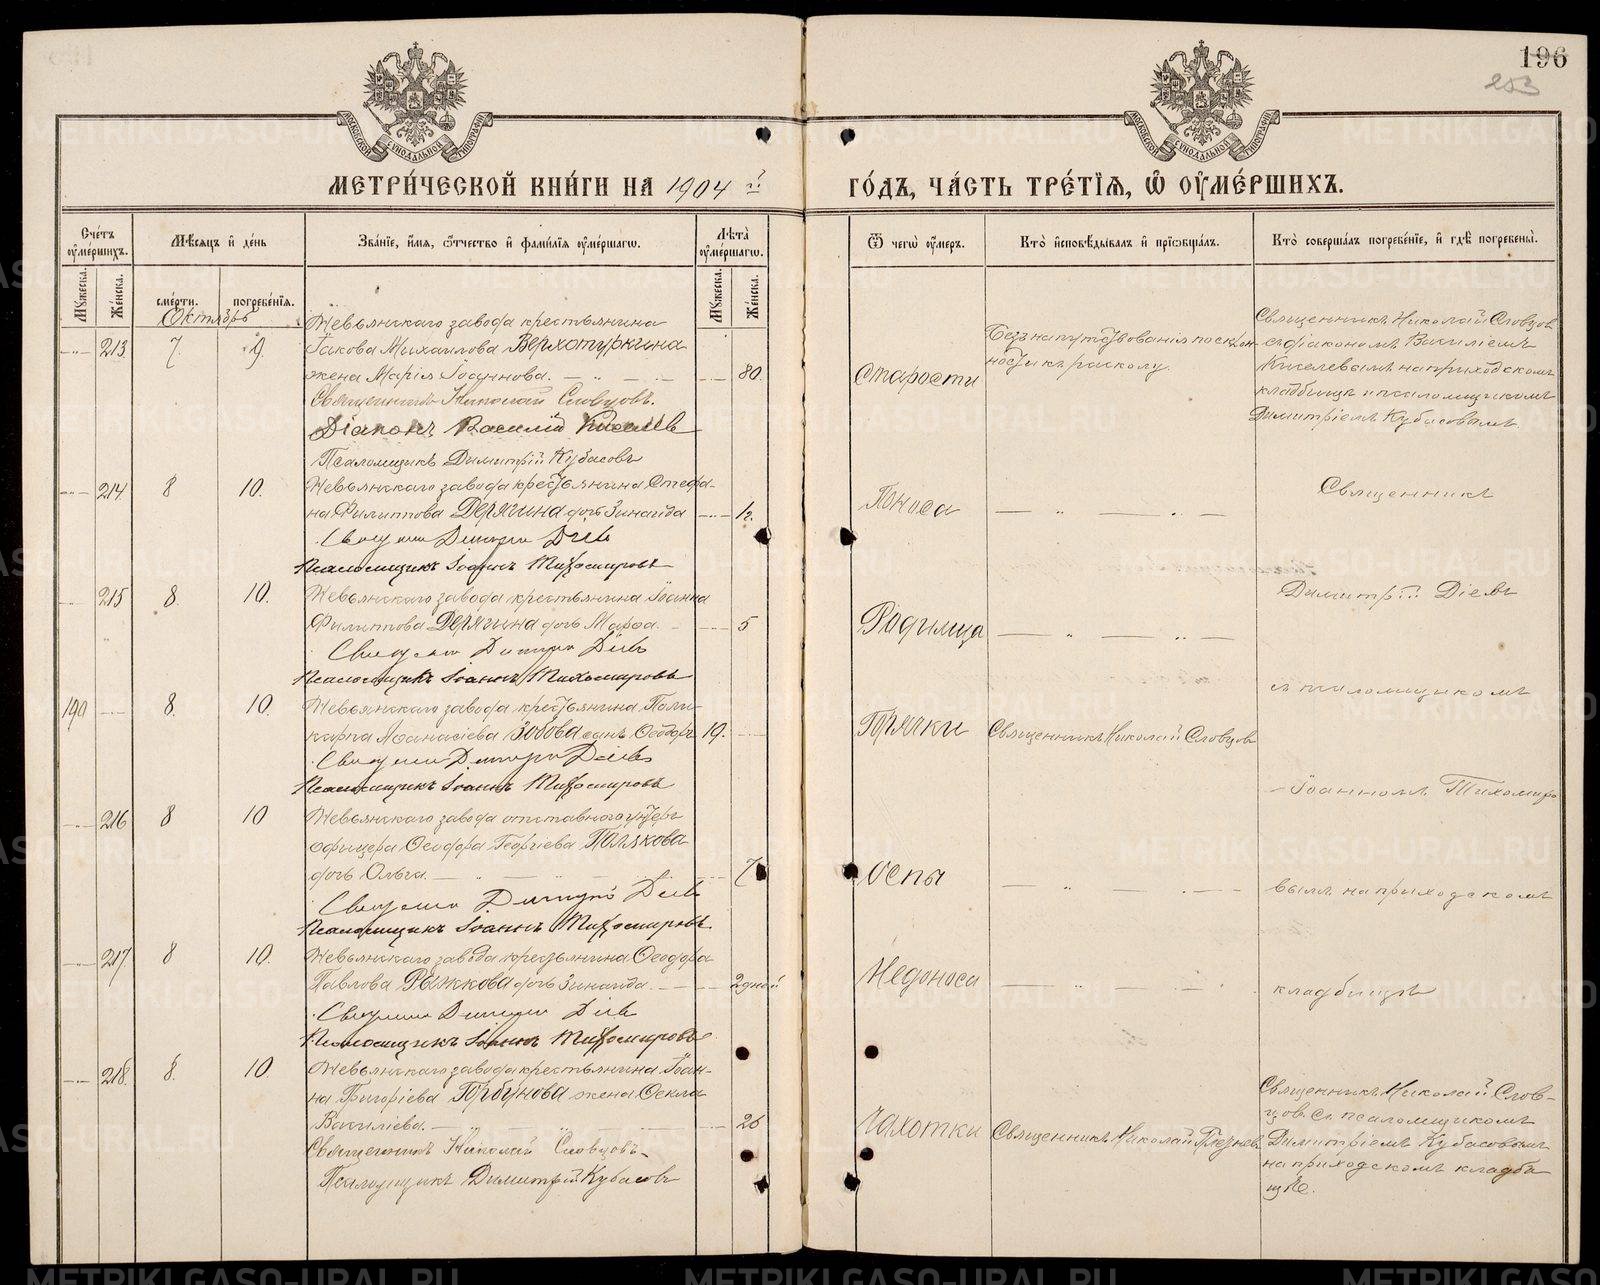 196
253
МОСКОВСКОЙ СѴНОДАЛЬНОЙ ТИПОГРАФІИ
МОСКОВСКОЙ СѴНОДАЛЬНОЙ ТИПОГРАФІИ
МЕТРИ́ЧЕСКОЙ КНИ́ГИ НА 1904 й
ГО́ДЪ, ЧА́СТЬ ТРЕ́ТІѦ, Ѡ҆ ОУ҆МЕ́РШИХЪ.
Сче́тъ оу҆ме́ршихъ.
Мꙋ́жеска.
Же́нска.
Мѣ́сяцъ и҆ де́нь
сме́рти.
погребе́нія.
Зва́ніе, и҆́мѧ, ѻ҆́тчество и҆ фами́лія оу҆ме́ршагѡ.
Лѣ́та оу҆ме́ршагѡ.
Мꙋ́жеска.
Же́нска.
Ѿ чегѡ̀ оу҆́меръ.
Кто̀ и҆сповѣ́дывалъ и҆ прїѡбща́лъ.
Кто̀ соверша́лъ погребе́ніе, и҆ гдѣ̀ погребены̀.
Октябрь
213 7. 9.
Невьянскаго завода крестьянина
Іакова Михаилова Верхотуркина
жена Марія Іоаннова. 80.
Священникъ Николай Словцовъ.
Діаконъ Василій Киселевъ
Псаломщикъ Димитрій Кубасовъ
Старости
Безъ напутствованія по склон-
ности къ расколу.
Священникъ Николай Словцов
съ діакономъ Василіемъ
Киселевымъ на приходскомъ
кладбище и псаломщикомъ
Димитріемъ Кубасовымъ.
214 8 10.
Невьянскаго завода крестьянина Стефа-
на Филиппова Дерягина дочь Зинаида ½.
Священникъ Димитрій Діевъ
Псаломщикъ Іоаннъ Тихомировъ
Поноса
Священникъ
215 8. 10.
Невьянскаго завода крестьянина Іоанна
Филиппова Дерягина дочь Марѳа. 5
Священникъ Димитрій Діевъ
Псаломщикъ Іоаннъ Тихомировъ
Родимца
Димитрій Діевъ
190 8. 10.
Невьянскаго завода крестьянина Поли-
карпа Аѳанасіева Зобова сынъ Ѳеодоръ 19.
Священникъ Димитрій Діевъ
Псаломщикъ Іоаннъ Тихомировъ
Горячки
Священникъ Николай Словцов
съ псаломщикомъ
Іоанномъ Тихомиро
216 8 10
Невьянскаго завода отставного унтеръ
офицера Ѳеодора Георгіева Полякова
дочь Ольга.
Священникъ Димитрій Діевъ
Псаломщикъ Іоаннъ Тихомировъ
Оспы
вымъ на приходскомъ
217 8 10.
Невьянскаго завода крестьянина Ѳеодора
Павлова Рожкова дочь Зинаида. 2 дней
Священникъ Димитрій Діевъ
Псаломщикъ Іоаннъ Тихомировъ
Недоноса
кладбищѣ
218. 8. 10.
Невьянскаго завода крестьянина Іоан-
на Григоріева Горбунова жена Ѳекла
Василіева. 26
Священникъ Николай Словцовъ
Псаломщикъ Димитрій Кубасовъ
Чахотки
Священникъ Николай Глезневъ
Священникъ Николай Слов-
цов. съ псаломщикомъ
Димитріемъ Кубасовымъ
на приходскомъ кладби-
щѣ.
METRIKI.GASO-URAL.RU